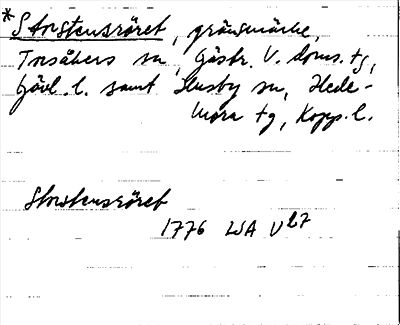 *Storstensröret, gränsmärke,
Torsåkers sn, Gästr. V. doms. tg,
Gävl. l. samt Husby sn, Hede-
mora tg, Kopp. l.
Storstensröret
1776 LSA U 27